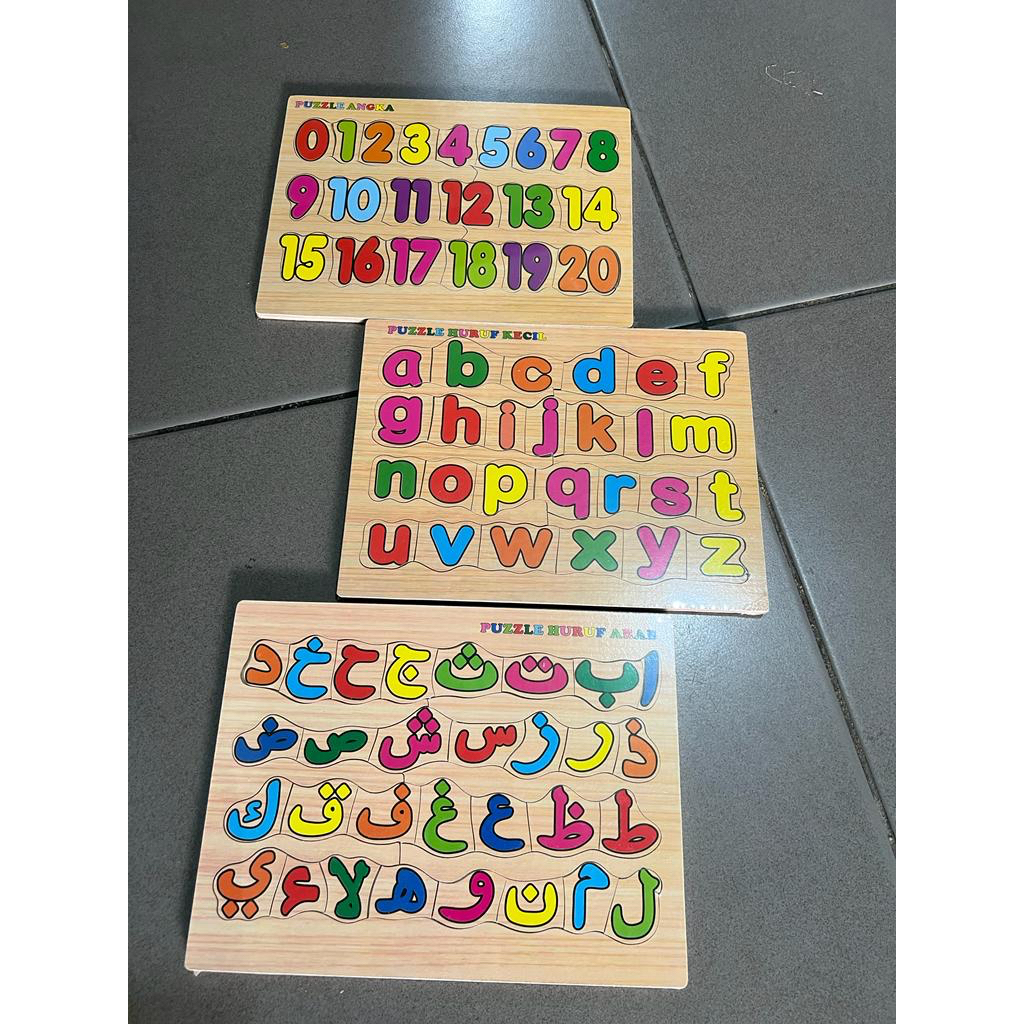 PUZZLE ANGKA
0 1 2 3 4 5 6 7 8
9 10 11 12 13 14
15 16 17 18 19 20
PUZZLE HURUF KECIL
a b c d e f
g h i j k l m
n o p q r s t
u v w x y z
PUZZLE HURUF ARAB
ا ب ت ث ج ح خ د
ذ ر ز س ش ص ض
ط ظ ع غ ف ق ك
ل م ن و ه لا ء ي